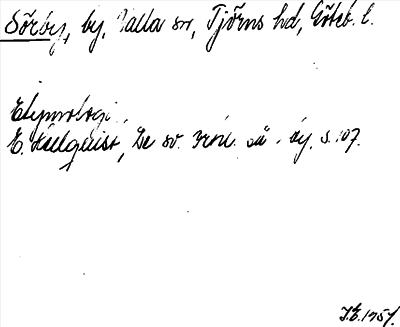 Sörby, by, Valla sn, Tjörns hd, Göteb. l.
Etymologi:
E. Hellquist, De sv. ortn. på -by, s. 107.